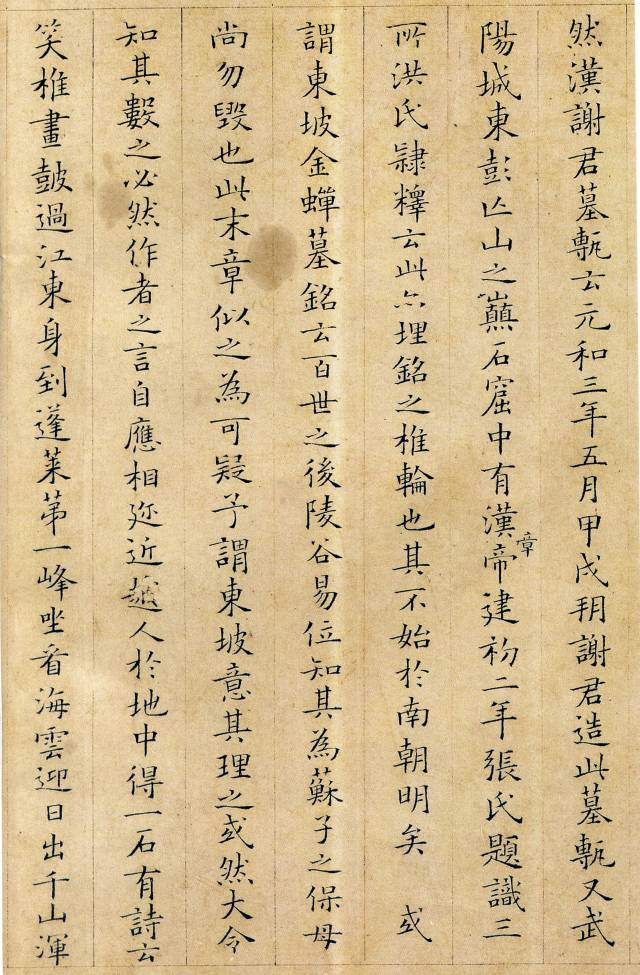 然漢謝君墓甎云元和三年五月甲戌朔謝君造此墓甎又武
陽城東彭亾山之巔石窟中有漢章帝建初二年張氏題識三
所洪氏隸釋云此亦埋銘之椎輪也其不始於南朝明矣 或
謂東坡金蟬墓銘云百世之後陵谷易位知其為蘇子之保母
尚勿毀也此末章似之為可疑予謂東坡意其理之或然大令
知其數之必然作者之言自應相近越人於地中得一石有詩云
笑椎畫鼓過江東身到蓬萊第一峰坐看海雲迎日出千山渾